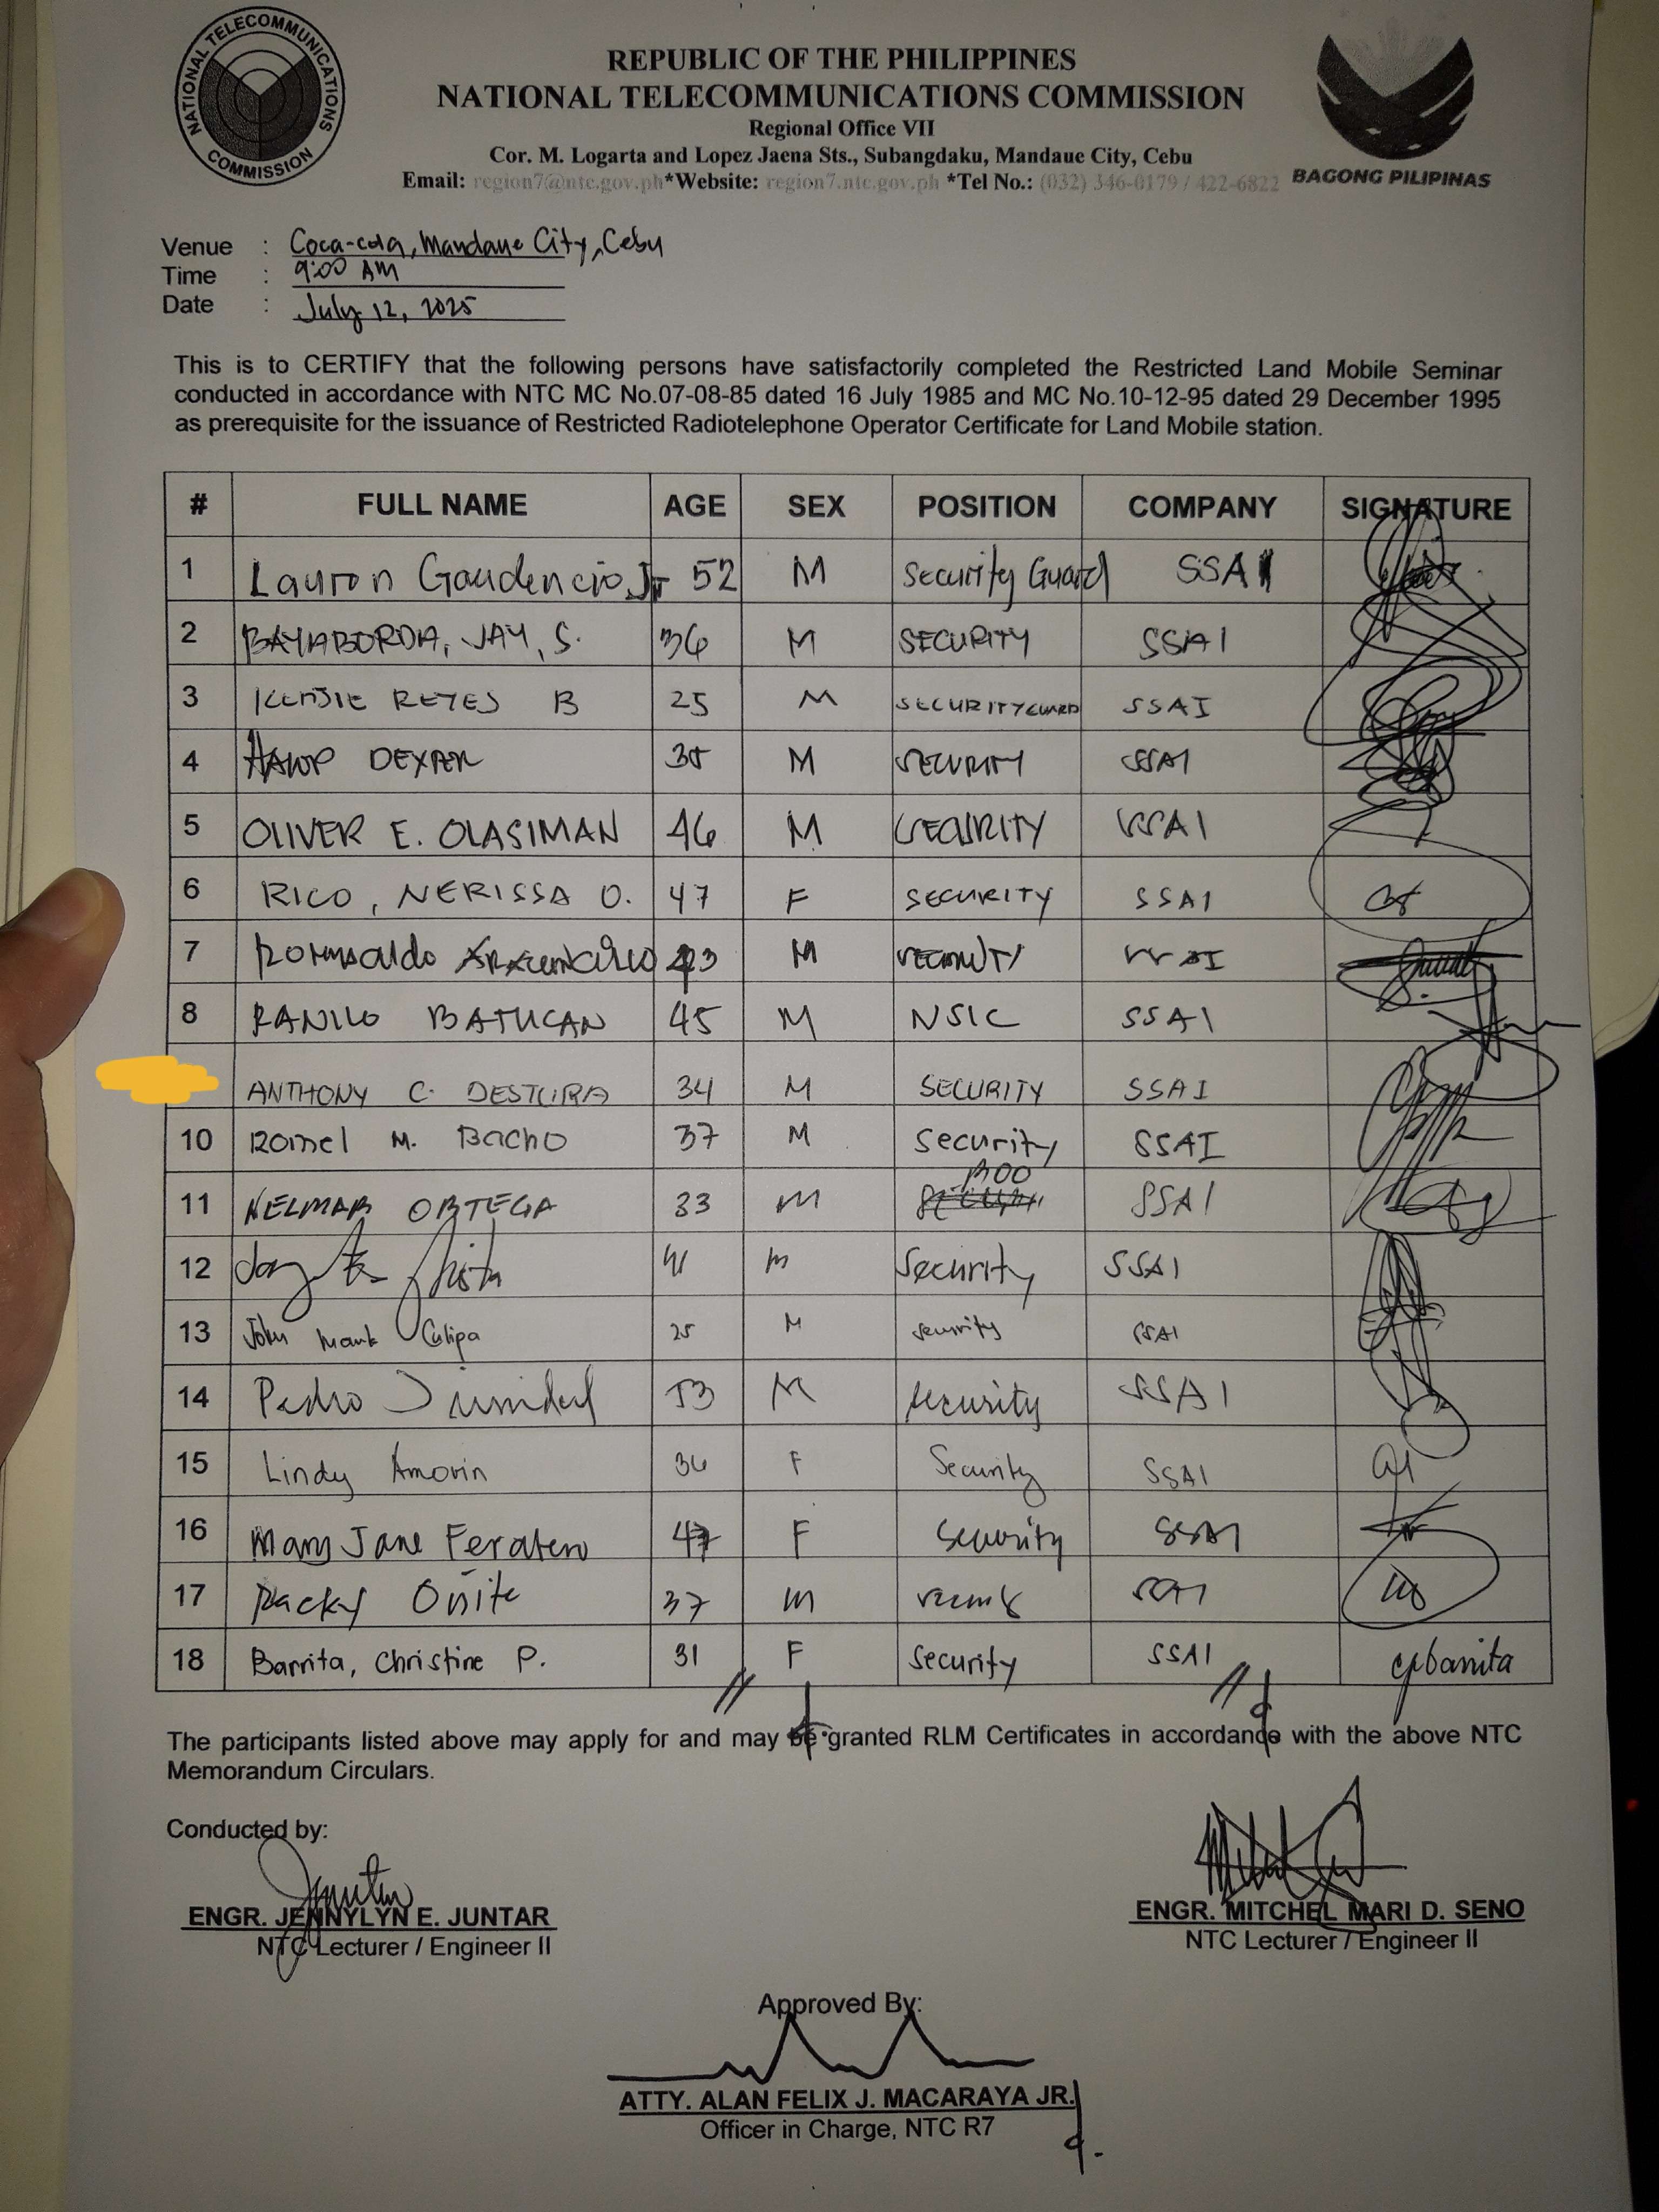 NATIONAL TELECOMMUNICATIONS COMMISSION
REPUBLIC OF THE PHILIPPINES
NATIONAL TELECOMMUNICATIONS COMMISSION
Regional Office VII
Cor. M. Logarta and Lopez Jaena Sts., Subangdaku, Mandaue City, Cebu
Email: region7@ntc.gov.ph*Website: region7.ntc.gov.ph *Tel No.: (032) 346-0179 / 422-6822
BAGONG PILIPINAS
Venue : Coca-cola, Mandaue City, Cebu
Time : 9:00 AM
Date : July 12, 2025
This is to CERTIFY that the following persons have satisfactorily completed the Restricted Land Mobile Seminar
conducted in accordance with NTC MC No.07-08-85 dated 16 July 1985 and MC No.10-12-95 dated 29 December 1995
as prerequisite for the issuance of Restricted Radiotelephone Operator Certificate for Land Mobile station.
# FULL NAME AGE SEX POSITION COMPANY SIGNATURE
1 Lauron Gaudencio, Jr 52 M Security Guard SSAI
2 BAYABORDA, JAY, S. 36 M SECURITY SSAI
3 KENJIE REYES B 25 M SECURITY GUARD SSAI
4 M SECURITY SSAI
5 OLIVER E. OLASIMAN 46 M SECURITY SSAI
6 RICO, NERISSA O. 47 F SECURITY SSAI
7 Romualdo M SECURITY SSAI
8 RANILO BATUCAN 45 M NSIC SSAI
ANTHONY C. DESTURA 34 M SECURITY SSAI
10 Romel M. Bacho 37 M Security SSAI
11 NELMAR ORTEGA 33 M SSAI
12 41 m Security SSAI
13 John Mark Culipa 25 M security SSAI
14 Pedro 53 M security SSAI
15 Lindy Amorin 36 F Security SSAI
16 Mary Jane 47 F Security SSAI
17 Packy Oñite 37 m SSAI
18 Barrita, Christine P. 31 F Security SSAI cpbarrita
The participants listed above may apply for and may be granted RLM Certificates in accordance with the above NTC
Memorandum Circulars.
Conducted by:
ENGR. JENNYLYN E. JUNTAR
NTC Lecturer / Engineer II
ENGR. MITCHEL MARI D. SENO
NTC Lecturer / Engineer II
Approved By:
ATTY. ALAN FELIX J. MACARAYA JR.
Officer in Charge, NTC R7